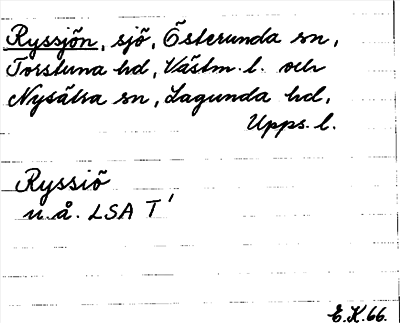 Ryssjön, sjö, Österunda sn,
Torstuna hd, Västm. l. och
Nysätra sn, Lagunda hd,
Upps. l.
Ryssiö
u. å. LSA T¹
E.K.66.